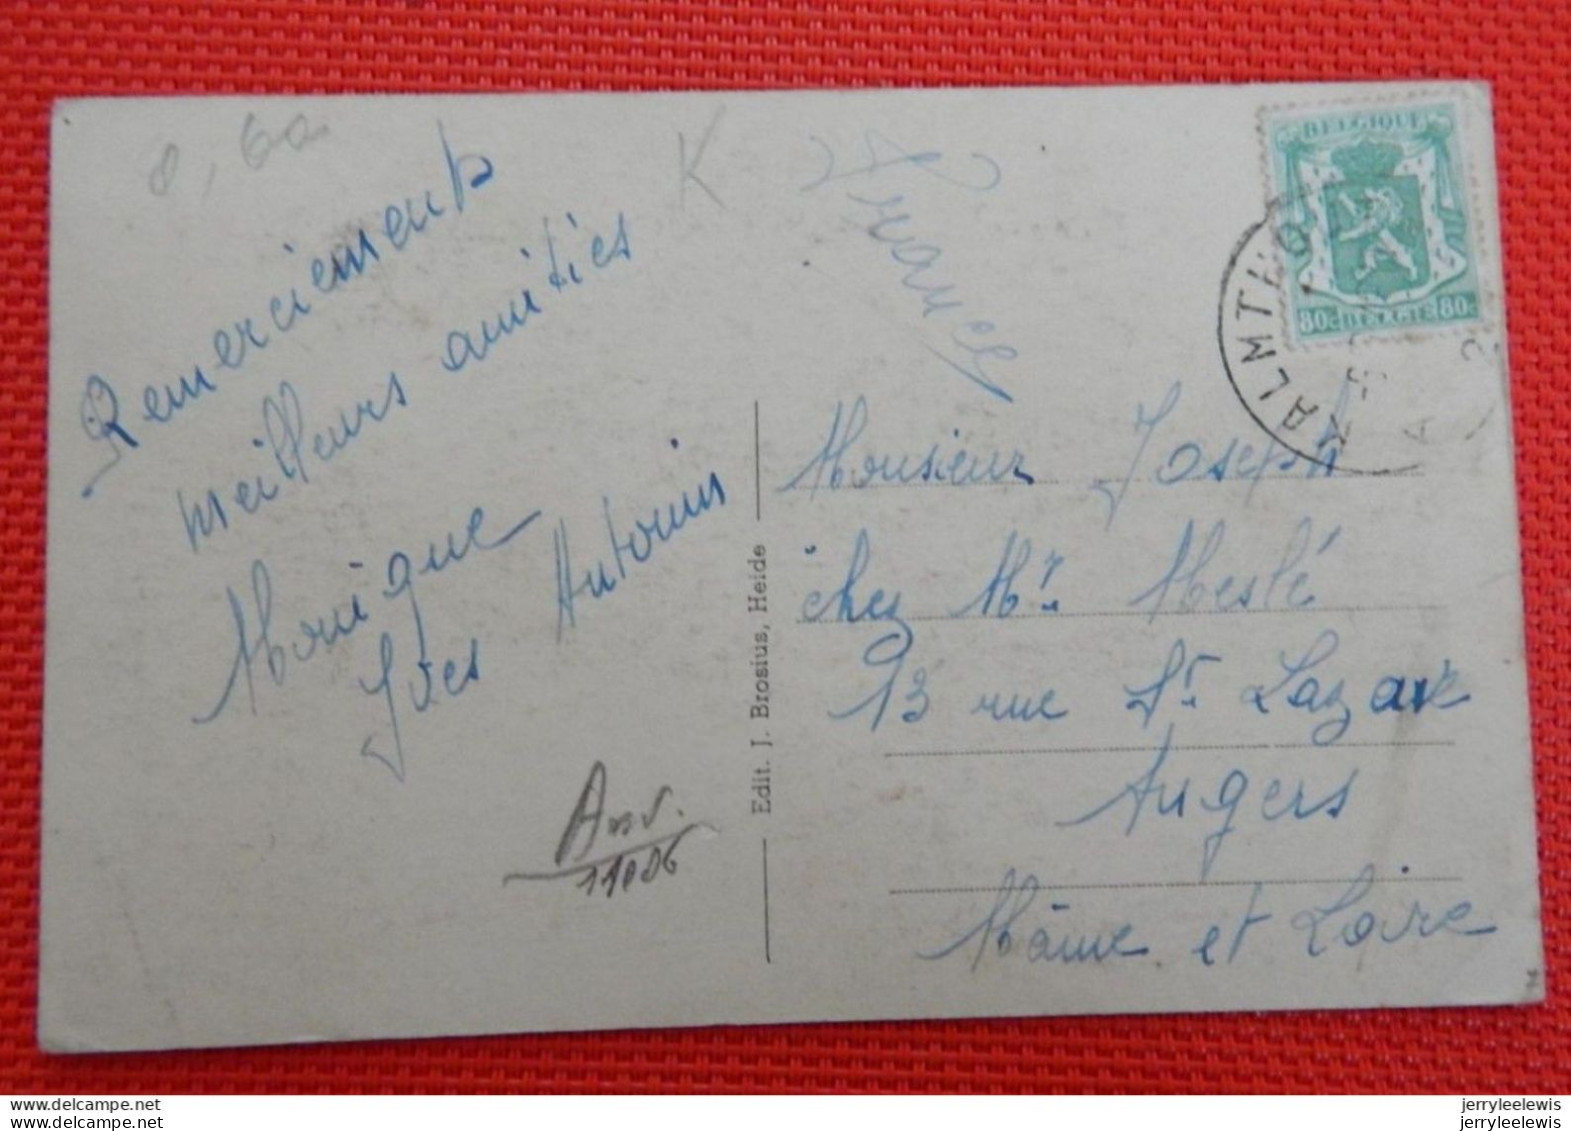 8,60
K
France
BELGIQUE
80c BELGIE 80c
KALMTHOUT
Remerciements
meilleurs amitiés
Monique
Yves Antonin
Edit. J. Brosius, Heide
Monsieur Joseph
chez Mr. Meslé
93 rue St. Lazare
Angers
Maine et Loire
11026
www.delcampe.net
jerryleelewis
jerryleelewis